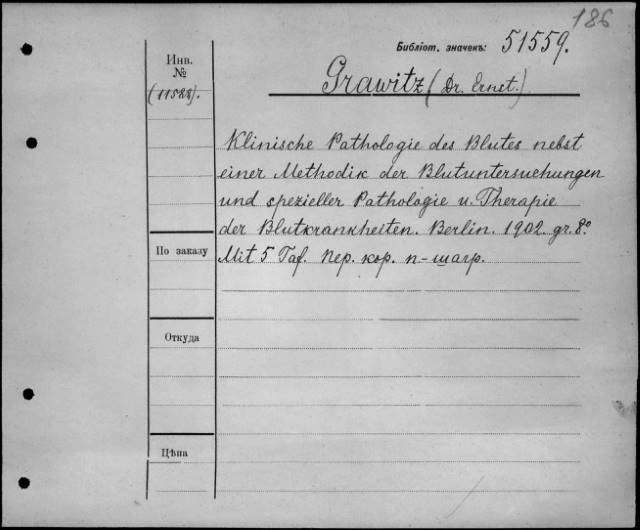 186
Библіот. значекъ: 51559.
Инв.
№
(11588).
Grawitz (Dr. Ernst.)
Klinische Pathologie des Blutes nebst
einer Methodik der Blutuntersuchungen
und spezieller Pathologie u. Therapie
der Blutkrankheiten. Berlin. 1902. gr. 8º
Mit 5 Taf. Пер. кор. п-шагр.
По заказу
Откуда
Цѣна